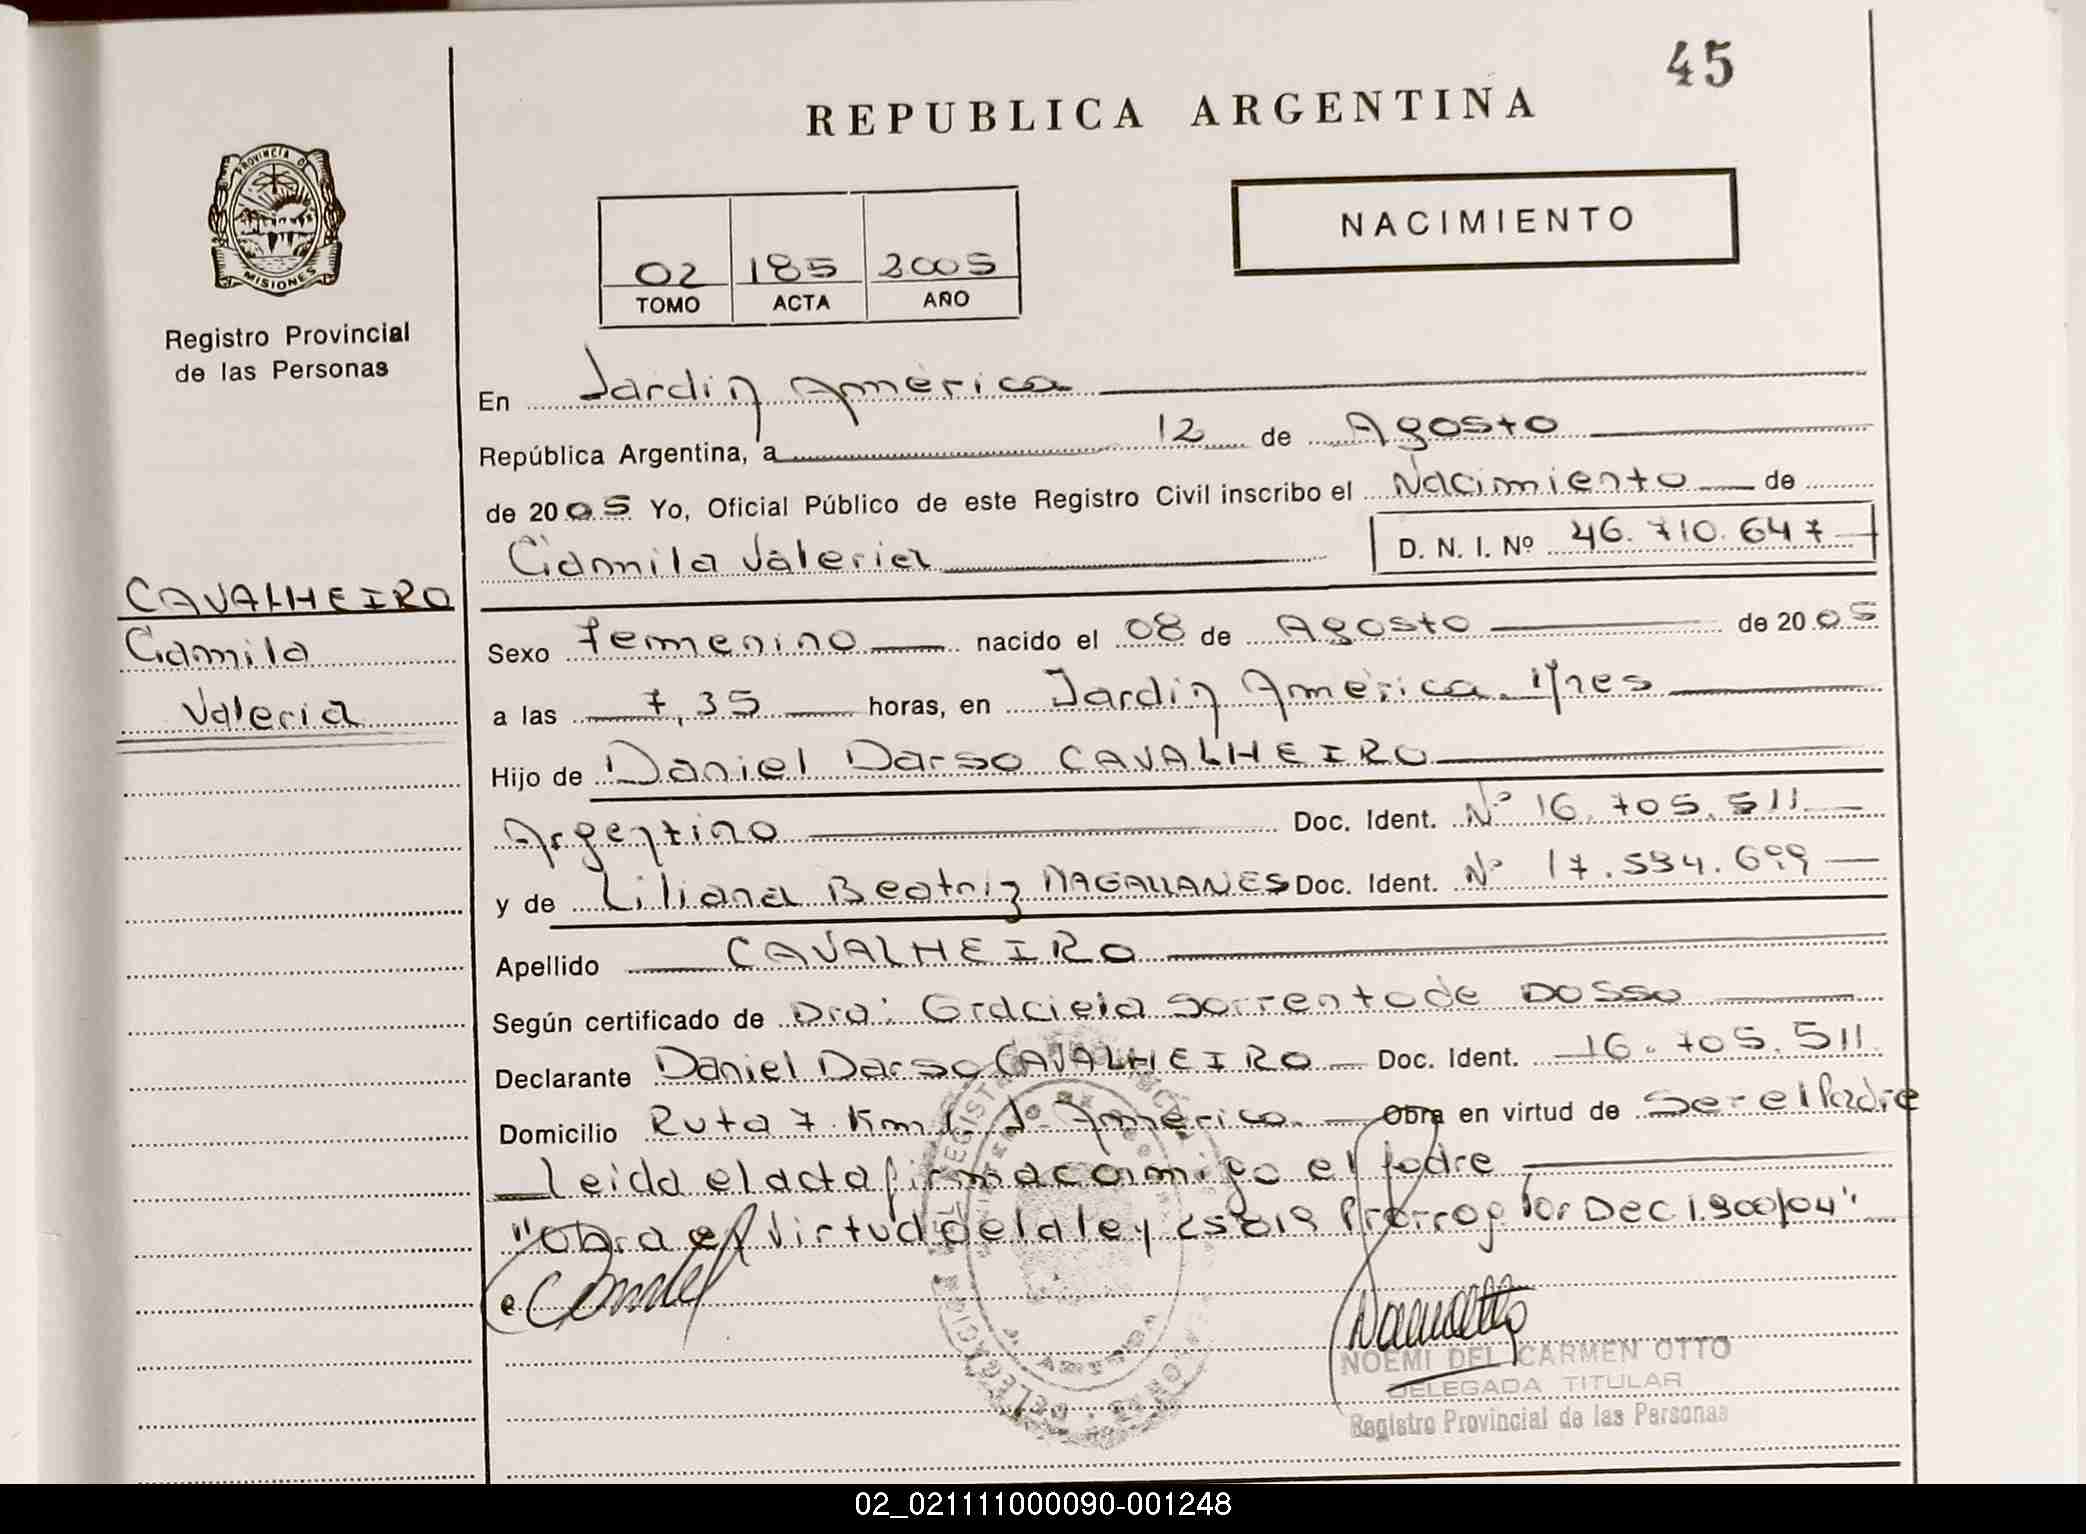 45
REPUBLICA ARGENTINA
NACIMIENTO
PROVINCIA D
MISIONES
02 185 2005
TOMO ACTA AÑO
Registro Provincial
de las Personas
En Jardin América
República Argentina, a 12 de Agosto
de 2005 Yo, Oficial Público de este Registro Civil inscribo el Nacimiento de
Camila Valeria D. N. I. Nº 46.710.647
CAVALHEIRO
Camila
Valeria
Sexo Femenino nacido el 08 de Agosto de 2005
a las 7,35 horas, en Jardin América. Mnes
Hijo de Daniel Darso CAVALHEIRO
Argentino Doc. Ident. Nº 16.705.511
y de Liliana Beatriz MAGALLANES Doc. Ident. Nº 17.594.699
Apellido CAVALHEIRO
Según certificado de Dra: Graciela Sorrento de DOSSO
Declarante Daniel Darso CAVALHEIRO Doc. Ident. 16.705.511
Domicilio Ruta 7 Km 1. J. América. Obra en virtud de Ser el Padre
Leida el acta firma conmigo el padre
"Obra en Virtud de la ley 25819 Prorrog por Dec 1.900/04"
NOEMI DEL CARMEN OTTO
DELEGADA TITULAR
Registro Provincial de las Personas
02_021111000090-001248